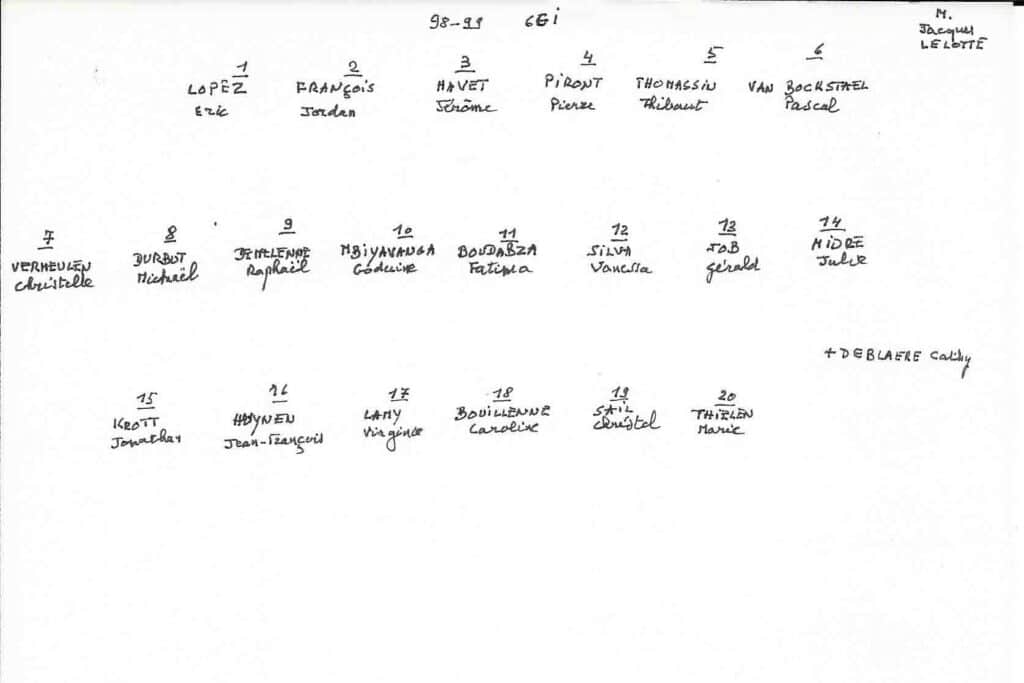 98-99 6Gi
M.
Jacques
LELOTTE
1 2 3 4 5 6
LOPEZ FRANÇOIS HAVET PIRONT THOMASSIN VAN BOCKSTAEL
Eric Jordan Jérôme Pierre Thibaut Pascal
7 8 9 10 11 12 13 14
VERMEULEN DURBUT MBIYAVANGA BOUDABZA SILVA JOB MIDRÉ
Christelle Michaël Raphaël Godwine Fatima Vanessa Gérald Julie
+ DEBLAERE Cathy
15 16 17 18 19 20
KROTT HEYNEN LAMY BOUILLENNE SAIL THIELEN
Jonathan Jean-François Virginie Caroline Christel Marie